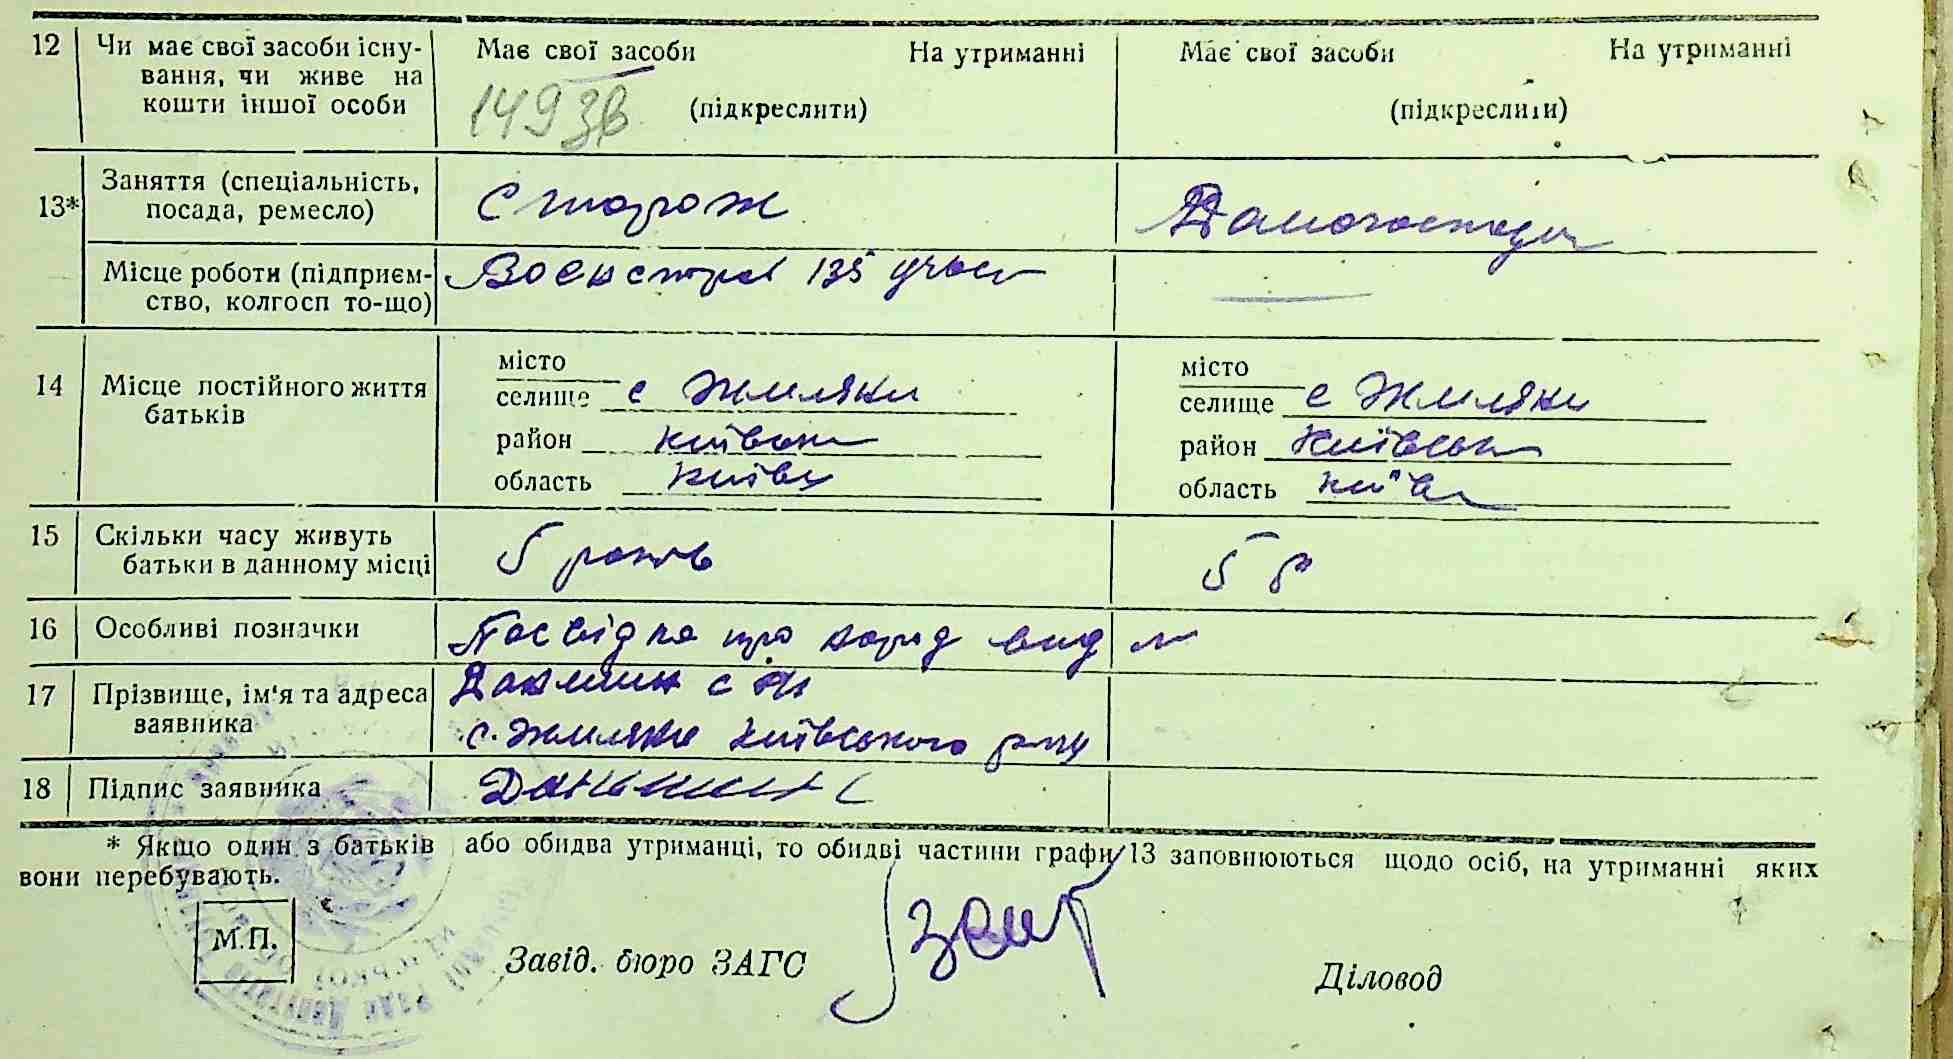 12 Чи має свої засоби існу- Має свої засоби На утриманні Має свої засоби На утриманні
вання, чи живе на
кошти іншої особи 149 зв (підкреслити) (підкреслити)
13* Заняття (спеціальність,
посада, ремесло) Сторож Домогоспод
Місце роботи (підприєм-
ство, колгосп то-що) 135
14 Місце постійного життя
батьків
місто місто
селище с Жмляки селище с Жмляки
район Київськ район Київськ
область Київс область Київ
15 Скільки часу живуть
батьки в данному місці 5 років 5 р
16 Особливі позначки Посвідка про народ вид
17 Прізвище, ім'я та адреса
заявника с. Жмляки Київського р-ну
18 Підпис заявника
* Якщо один з батьків або обидва утриманці, то обидві частини графи 13 заповнюються щодо осіб, на утриманні яких
вони перебувають.
М.П.
Завід. бюро ЗАГС Діловод